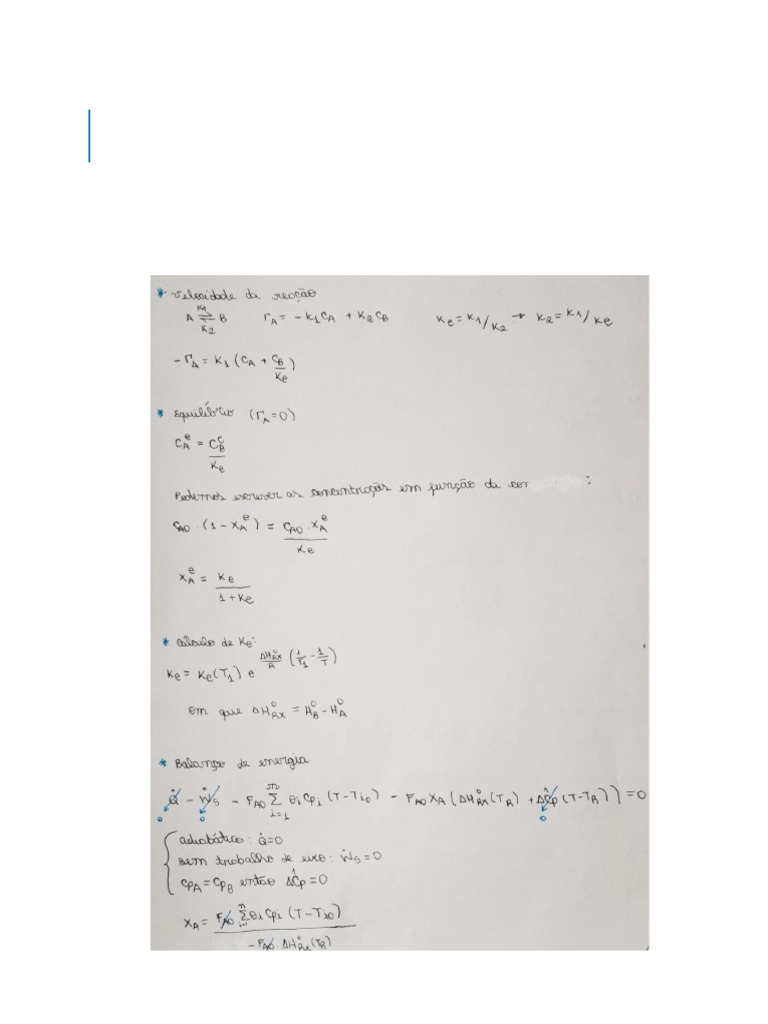 * Velocidade da recção
A ⇌ B (K1, K2)   rA = - K1 CA + K2 CB   Ke = K1/K2 → K2 = K1/Ke
- rA = K1 (CA + CB/Ke)
* Equilíbrio (rA = 0)
CA^e = CB^e/Ke
Podemos escrever as concentrações em função da con :
CA0 · (1 - XA^e) = CA0 · XA^e / Ke
XA^e = Ke / (1 + Ke)
* Cálculo de Ke:
Ke = Ke(T1) e^(ΔH°RX/R (1/T1 - 1/T))
em que ΔH°RX = H°B - H°A
* Balanço de energia
Q̇ - Ẇs - FA0 Σ(i=1) θi Cpi (T - Ti0) - FA0 XA (ΔH°RX(TR) + ΔĈp (T - TR)) = 0
0 0 0
adiabático: Q̇ = 0
sem trabalho de eixo: Ẇs = 0
CpA = CpB então ΔĈp = 0
XA = FA0 Σ(i=1)^n θi Cpi (T - Ti0) / - FA0 ΔH°RX(TR)